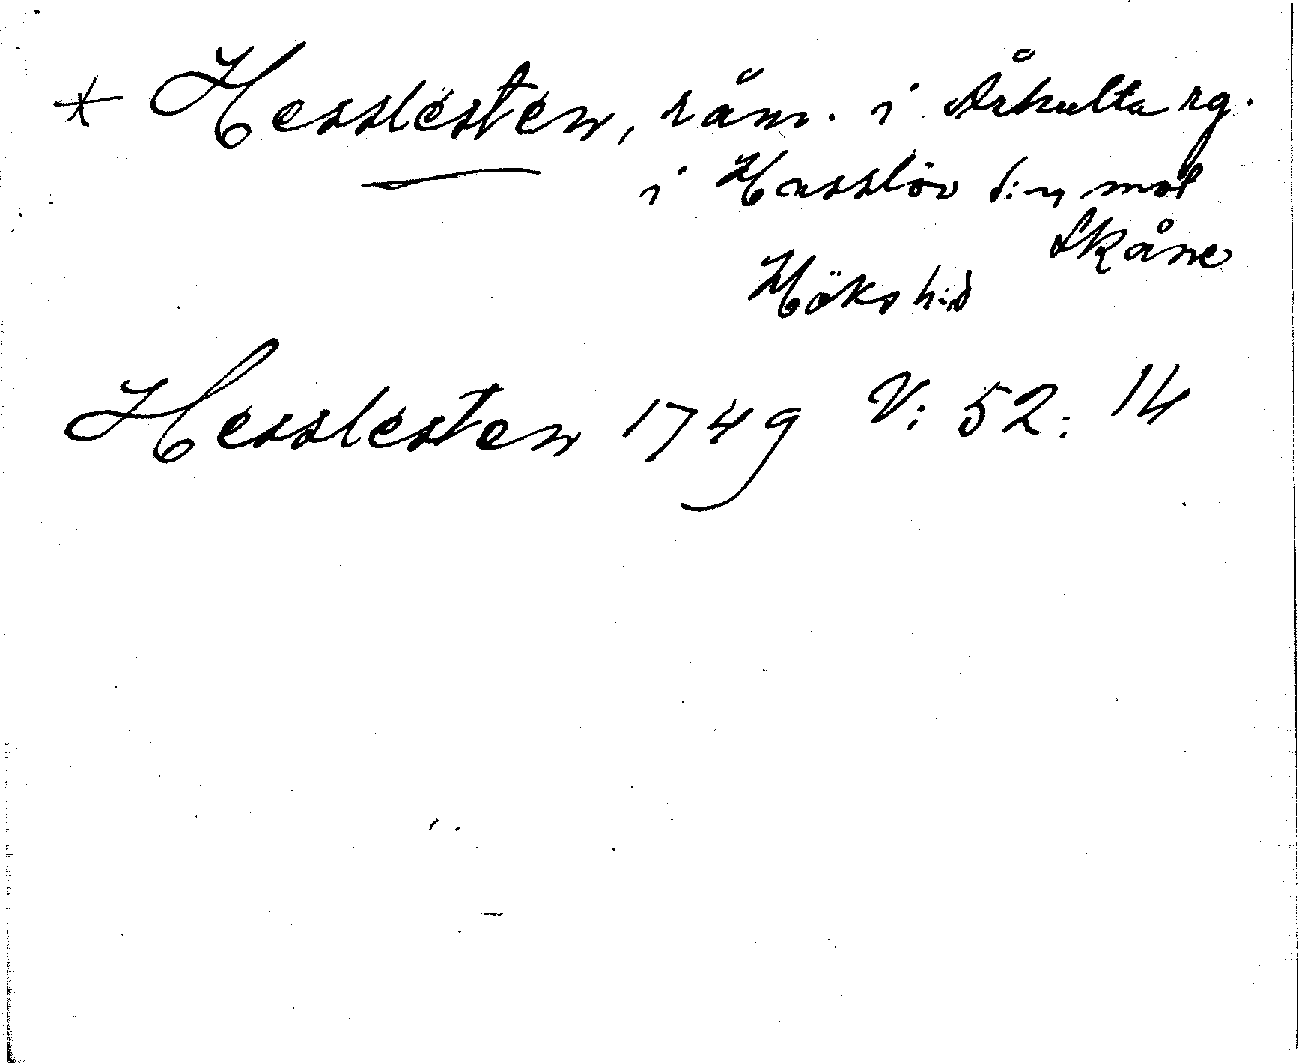 * Hesslesten, råm. i Århulta rg.
i Hasslöv s:n mot
Skåne
Höks h:d
Hesslesten 1749 V: 52: 14